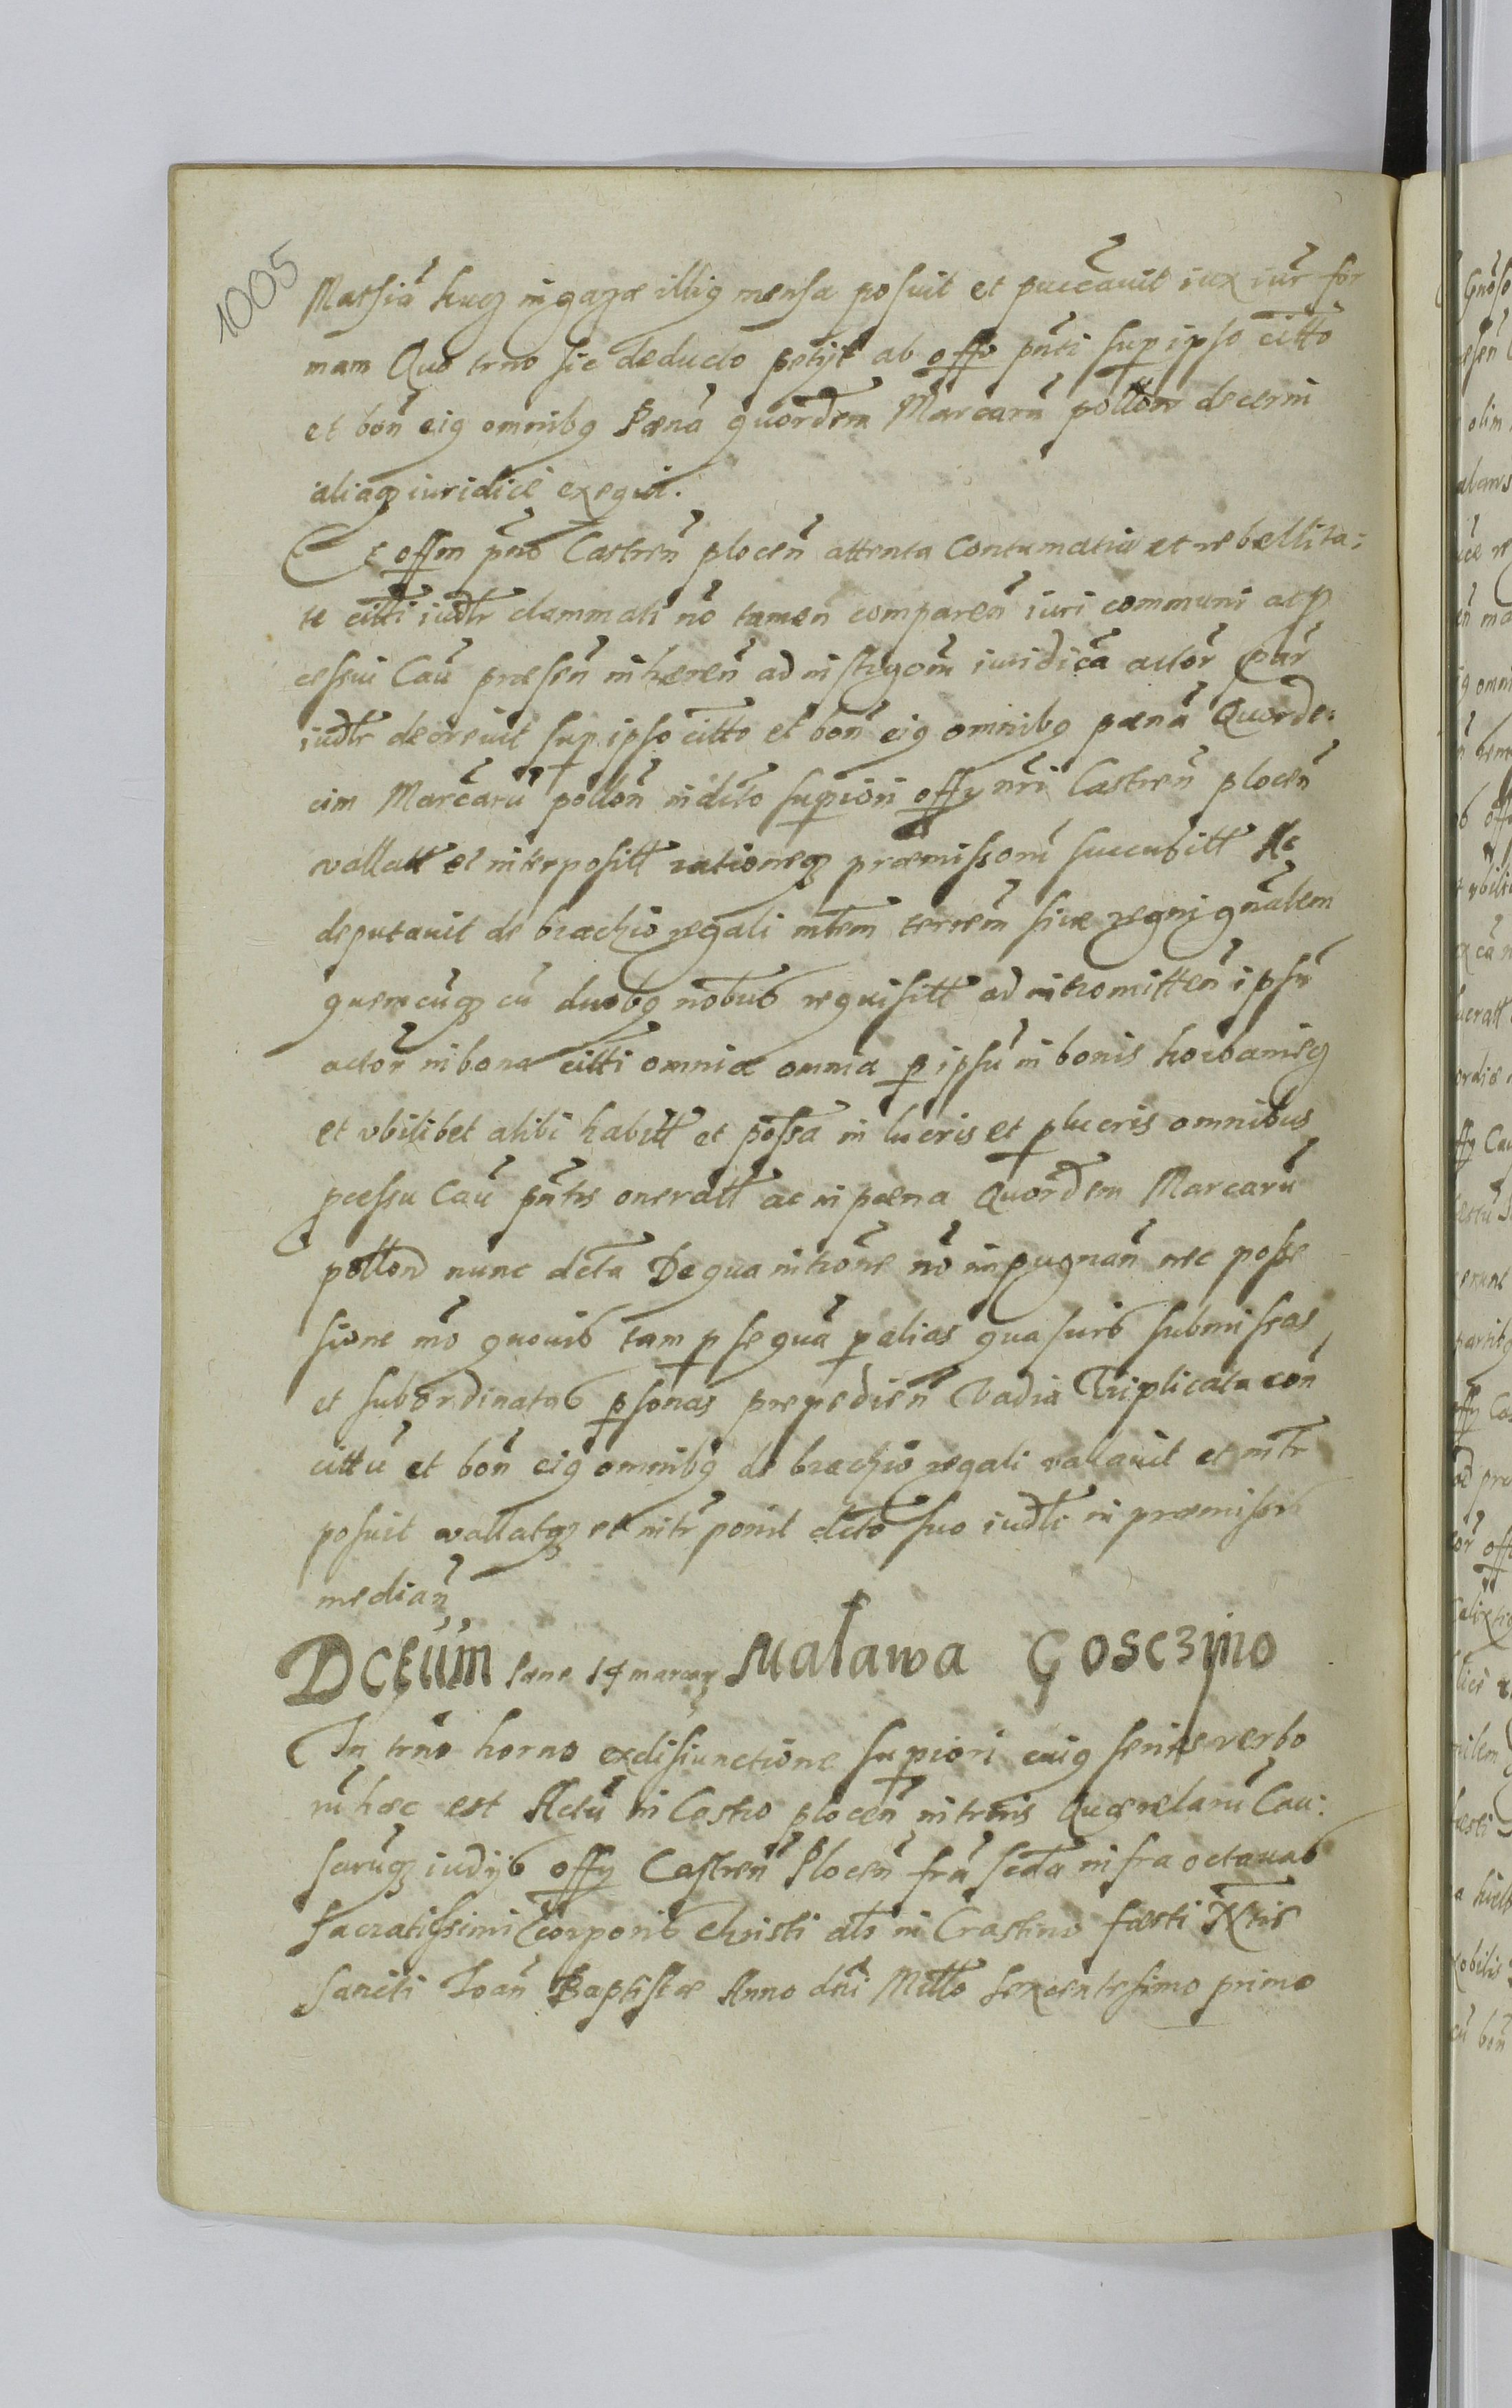 1005
Massiā huqꝫ in gazae illiꝯ mensa posuit et puccauit iux iur̃ for
mam Quo trno sic deducto petijt ab offo pñti sup ipso citto
et bon̄ eiꝯ omnibꝯ Paenā quordem Marcarū pollon decerni
aliaqꝫ iuridice exequi.
Et offm pns Castren̄ plocen̄ attenta Contumatia et rebellita:
te citti iudtr clammati nō tamen comparen̄ iuri communi ac p
cessui Cau̅ praesen̄ inhaeren̄ ad instygom̄ iuridicā actor̄ par̄
iudtr decreuit sup ipso citto et bon̄ eiꝯ omnibꝯ paenā Quorde:
cim Marcarū pollon̄ in dicto supiori offy nr̄i Castren̄ plocen̄
vallatt et interpositt rationeqꝫ praemissorū succubitt Ac
deputauit de brachio regali mtem terrem̄ siue regni gnālem
quemcūqꝫ cū duobꝯ nobub requisitt ad intromitten̄ ipsū
actor̄ in bona citti omnia omnia p ipsū in bonis horbamieqꝫ
et vbilibet alibi habitt et possa in lucris et plucris omnibus
pcessu Cau̅ pn̄tis oneratt ac in paena Quordem Marcarū
pollon̄ nunc dcta De qua intrōne nō impugnan̄ nec posse
sione mō quouis tam p se quā p alias quasuis submissas
et subordinatas psonas praepedien̄ Vadia Triplicata con̄
cittū et bon̄ eiꝯ omnibꝯ de brachio regali vallauit et intr̄
posuit vallatqꝫ et intr̄ponit dicto suo iudtr in praemissis
median̄
Dctum paene 14 marcar Malawa Gosczino
In trno horno exdisiunctione supiori cuiꝯ series verbo
rū haec est Actū in Castro plocen̄ in trnis Querelarū Cau:
sarūqꝫ iudijs offy Castren̄ Plocen̄ fr̄a scda infra octauas
sacratissimi corporis Christi als in Crastino faesti Ntis
sancti Joan̄ Baptistae Anno dni Mitto sexcentesimo primo